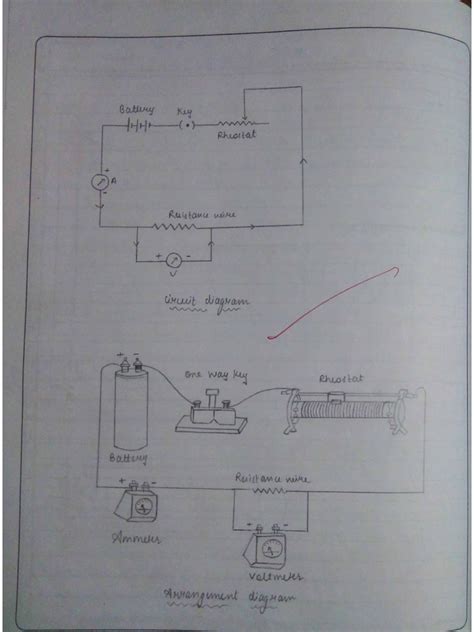 Battery Key
Rheostat
+
A
-
Resistance wire
+ -
V
Circuit diagram
+ -
one way key
Rheostat
Battery
+ -
Resistance wire
Ammeter
+ -
Voltmeter
Arrangement diagram